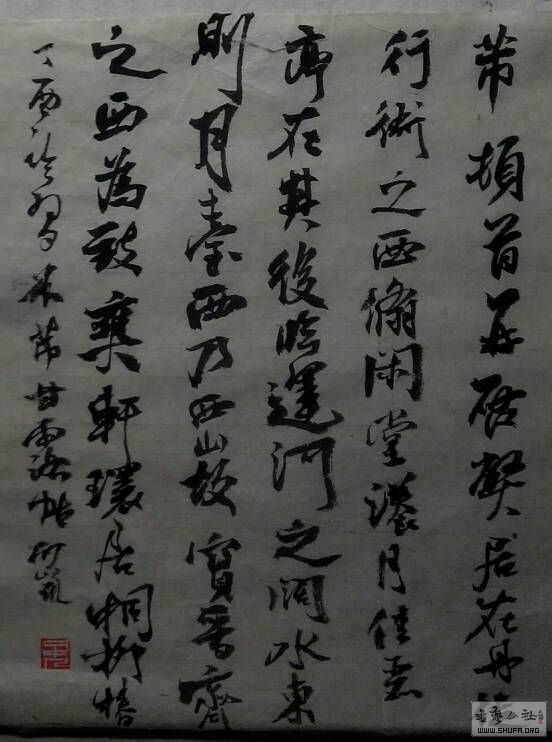 芾頓首再啓弊居在丹
行衙之西翛閑堂漾月佳
亭在其後臨運河之闊水東
則月臺西乃西山故寶晉齋
之西為致爽軒環居桐柳椿
丁酉 米芾甘露帖何
書藝公社
WWW.SHUFA.ORG